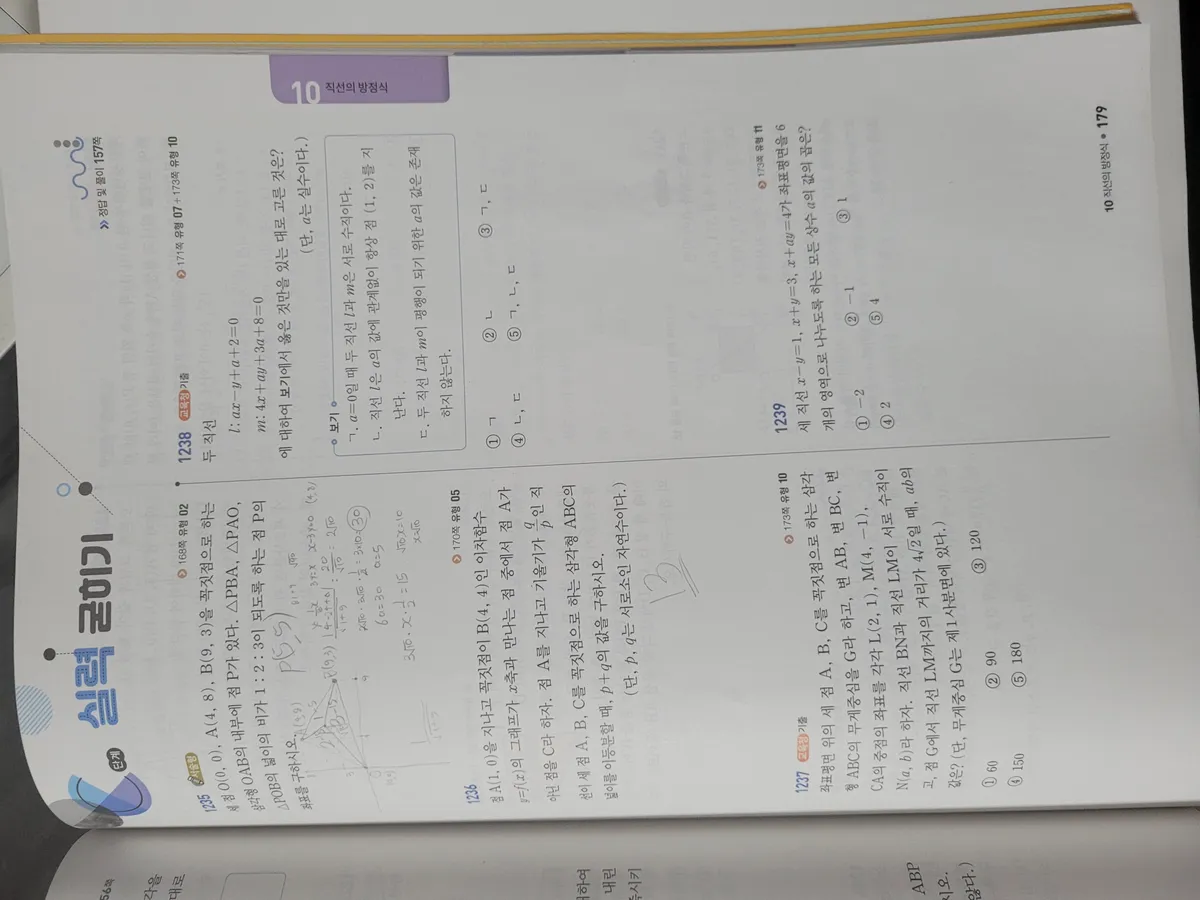 단계
실력 굳히기
>> 정답 및 풀이 157쪽
10
직선의 방정식
1235 서술형
168쪽 유형 02
세 점 O(0, 0), A(4, 8), B(9, 3)을 꼭짓점으로 하는
삼각형 OAB의 내부에 점 P가 있다. △PBA, △PAO,
△POB의 넓이의 비가 1 : 2 : 3이 되도록 하는 점 P의
좌표를 구하시오.
P(5, 5)
60=30
a=5
1236
170쪽 유형 05
점 A(1, 0)을 지나고 꼭짓점이 B(4, 4)인 이차함수
y=f(x)의 그래프가 x축과 만나는 점 중에서 점 A가
아닌 점을 C라 하자. 점 A를 지나고 기울기가 q/p인 직
선이 세 점 A, B, C를 꼭짓점으로 하는 삼각형 ABC의
넓이를 이등분할 때, p+q의 값을 구하시오.
(단, p, q는 서로소인 자연수이다.)
13
1237 교육청 기출
173쪽 유형 10
좌표평면 위의 세 점 A, B, C를 꼭짓점으로 하는 삼각
형 ABC의 무게중심을 G라 하고, 변 AB, 변 BC, 변
CA의 중점의 좌표를 각각 L(2, 1), M(4, −1),
N(a, b)라 하자. 직선 BN과 직선 LM이 서로 수직이
고, 점 G에서 직선 LM까지의 거리가 4√2일 때, ab의
값은? (단, 무게중심 G는 제1사분면에 있다.)
① 60 ② 90 ③ 120
④ 150 ⑤ 180
1238 교육청 기출
171쪽 유형 07 + 173쪽 유형 10
두 직선
l: ax−y+a+2=0
m: 4x+ay+3a+8=0
에 대하여 보기에서 옳은 것만을 있는 대로 고른 것은?
(단, a는 실수이다.)
보기
ㄱ. a=0일 때 두 직선 l과 m은 서로 수직이다.
ㄴ. 직선 l은 a의 값에 관계없이 항상 점 (1, 2)를 지
난다.
ㄷ. 두 직선 l과 m이 평행이 되기 위한 a의 값은 존재
하지 않는다.
① ㄱ ② ㄴ ③ ㄱ, ㄷ
④ ㄴ, ㄷ ⑤ ㄱ, ㄴ, ㄷ
1239
173쪽 유형 11
세 직선 x−y=1, x+y=3, x+ay=4가 좌표평면을 6
개의 영역으로 나누도록 하는 모든 상수 a의 값의 곱은?
① −2 ② −1 ③ 1
④ 2 ⑤ 4
10 직선의 방정식 • 179
56쪽
각을
대로
하여
내린
ABP
시오.
않다.)